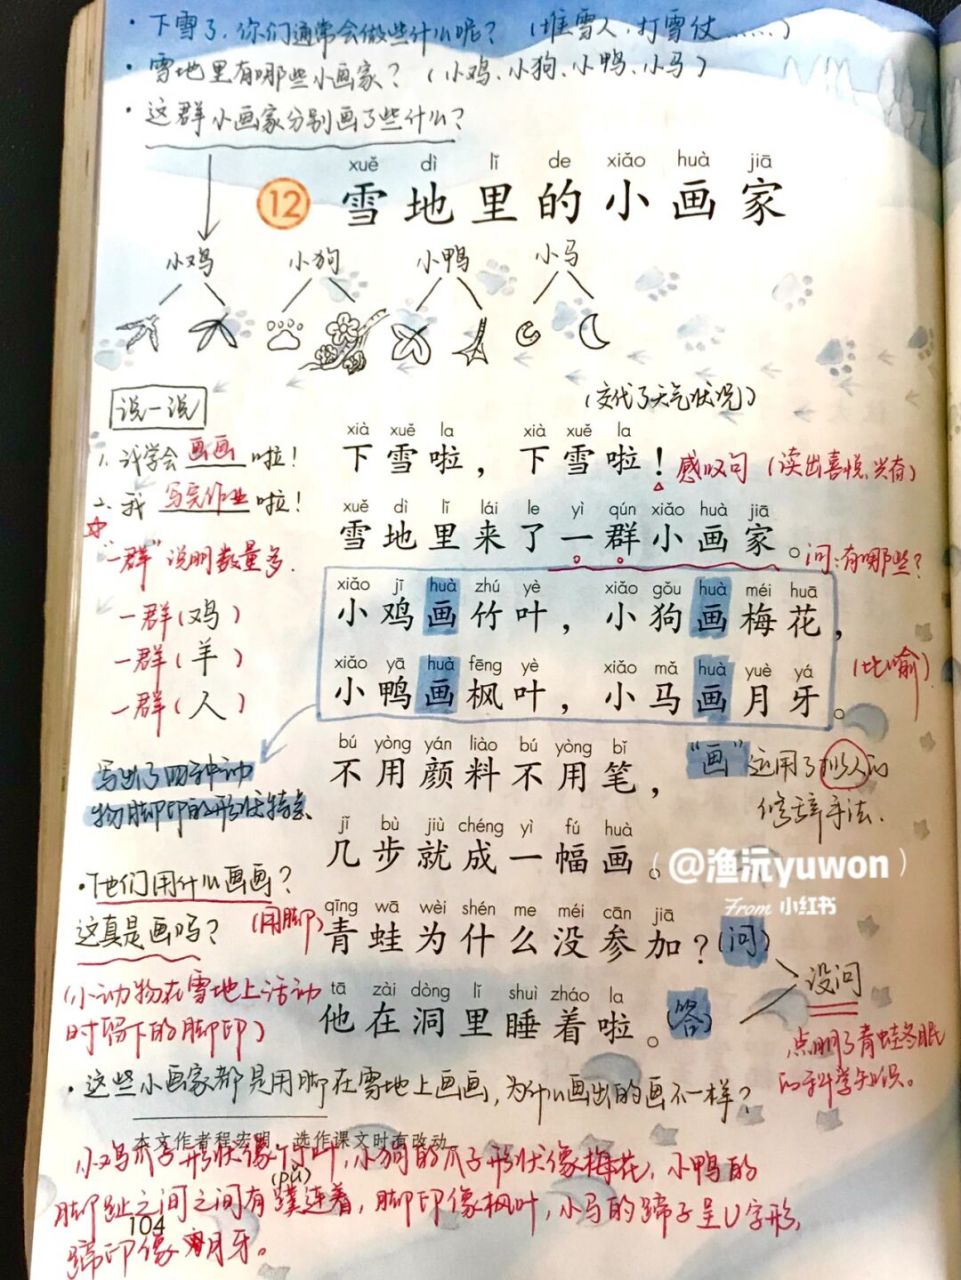 · 下雪了，你们通常会做些什么呢？（堆雪人、打雪仗……）
· 雪地里有哪些小画家？（小鸡、小狗、小鸭、小马）
· 这群小画家分别画了些什么？
xuě dì lǐ de xiǎo huà jiā
12 雪地里的小画家
小鸡 小狗 小鸭 小马
说一说
（交代了天气状况）
1. 我学会画画啦！
2. 我写完作业啦！
xià xuě la xià xuě la
下雪啦，下雪啦！
感叹句（读出喜悦、兴奋）
xuě dì lǐ lái le yì qún xiǎo huà jiā
雪地里来了一群小画家。
问：有哪些？
“一群”说明数量多.
一群（鸡）
一群（羊）
一群（人）
xiǎo jī huà zhú yè xiǎo gǒu huà méi huā
小鸡画竹叶，小狗画梅花，
xiǎo yā huà fēng yè xiǎo mǎ huà yuè yá
小鸭画枫叶，小马画月牙。
（比喻）
写出了四种动
物脚印的形状特点
bú yòng yán liào bú yòng bǐ
不用颜料不用笔，
“画”运用了拟人的
修辞手法.
jǐ bù jiù chéng yì fú huà
几步就成一幅画。
@渔沅yuwon
From 小红书
·他们用什么画画？
这真是画吗？（用脚）
qīng wā wèi shén me méi cān jiā
青蛙为什么没参加？（问）
tā zài dòng lǐ shuì zháo la
他在洞里睡着啦。（答）
设问
点明了青蛙冬眠
的科学知识。
（小动物在雪地上活动
时留下的脚印）
· 这些小画家都是用脚在雪地上画画，为什么画出的画不一样？
本文作者程宏明，选作课文时有改动。
小鸡爪子形状像竹叶，小狗的爪子形状像梅花，小鸭的
(pǔ)
脚趾之间之间有蹼连着，脚印像枫叶，小马的蹄子呈U字形，
104
蹄印像月牙。